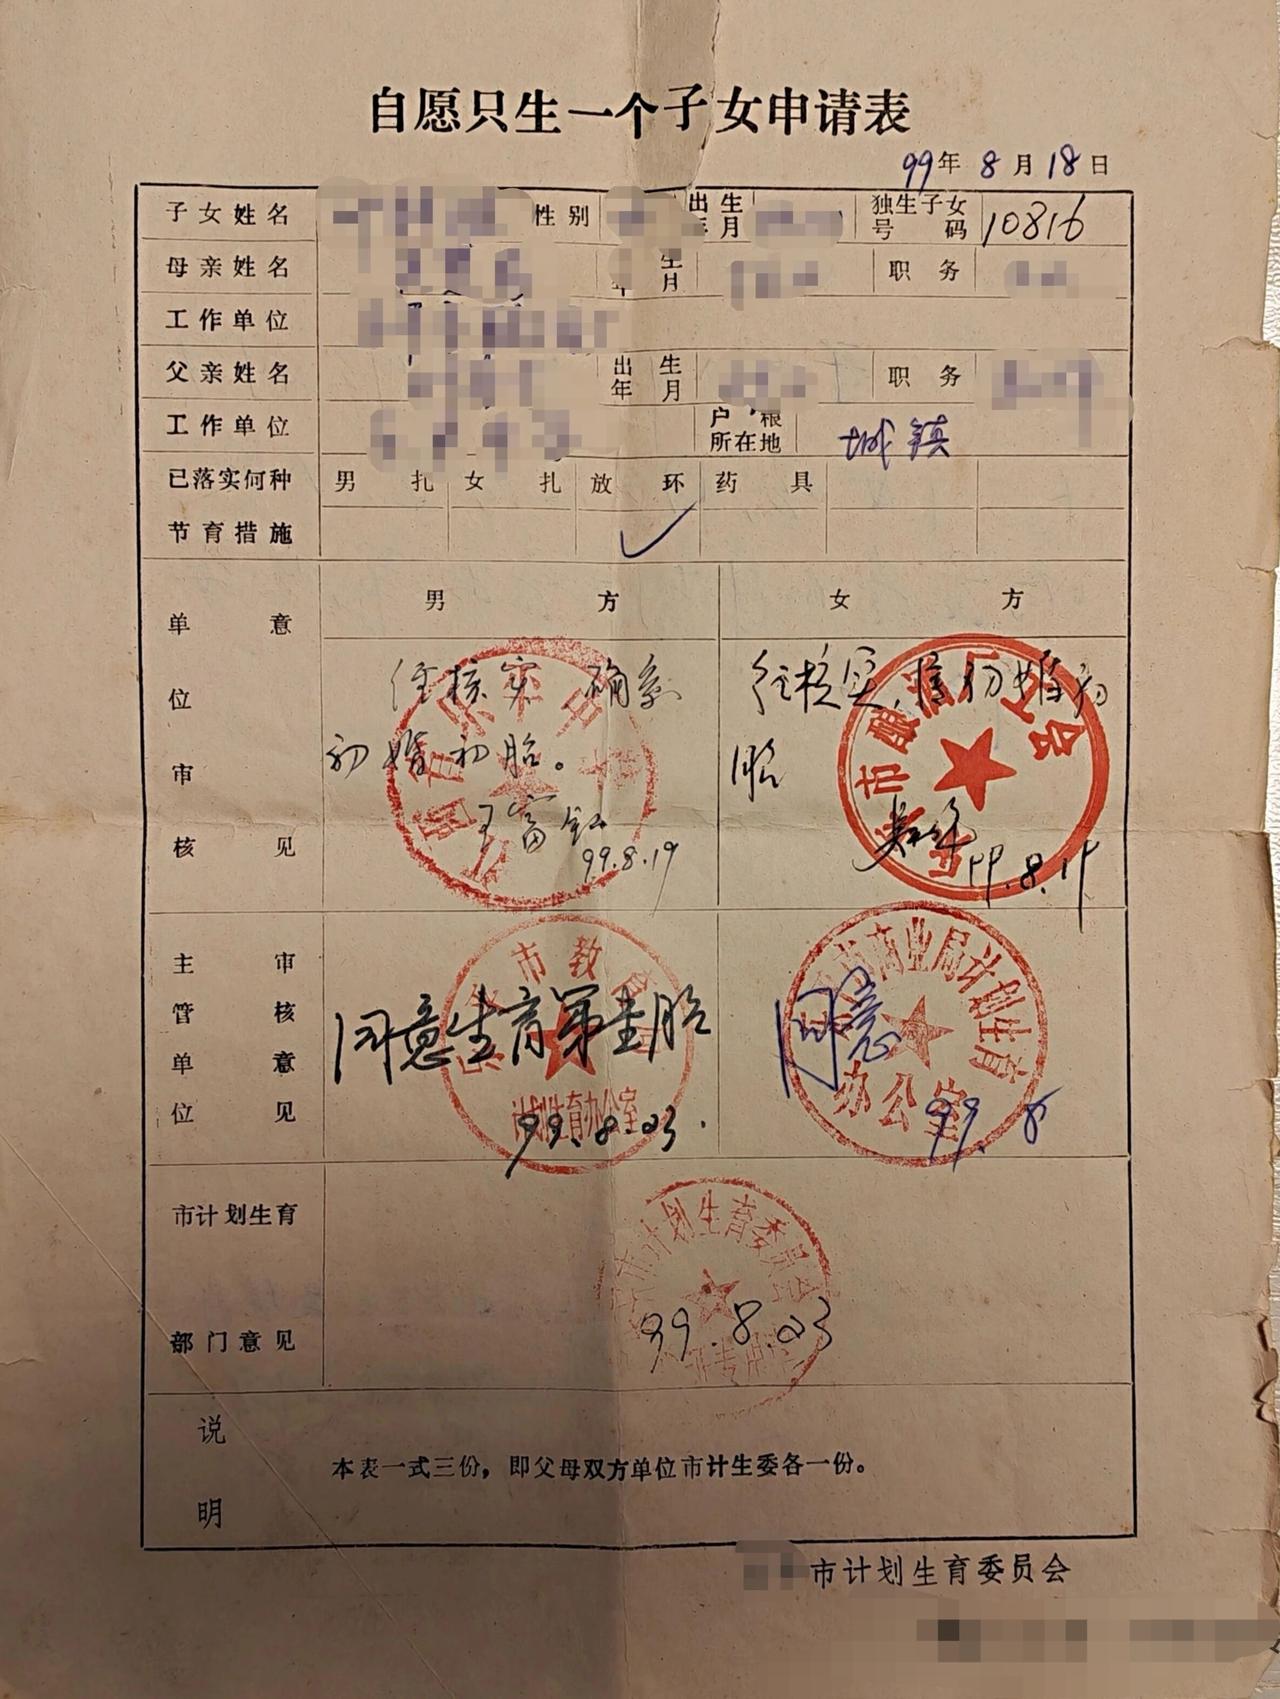 自愿只生一个子女申请表
99年8月18日
子女姓名 性别 出生年月 独生子女号码 10816
母亲姓名 生月 职务
工作单位
父亲姓名 出生年月 职务
工作单位 户粮所在地 城镇
已落实何种 男扎 女扎 放环 药具
节育措施 ✓
单位审核意见 男方 女方
经核实 确系
初婚初胎。
王富
99.8.19
经核实,
胎
99.8.19
市服 厂工会
主管单位审核意见
同意生育第壹胎
99.8.23.
市教育
计划生育办公室
同意
99.8
商业局计划生育
办公室
市计划生育
部门意见
市计划生育委员会
99.8.23
专用
说明
本表一式三份，即父母双方单位市计生委各一份。
市计划生育委员会